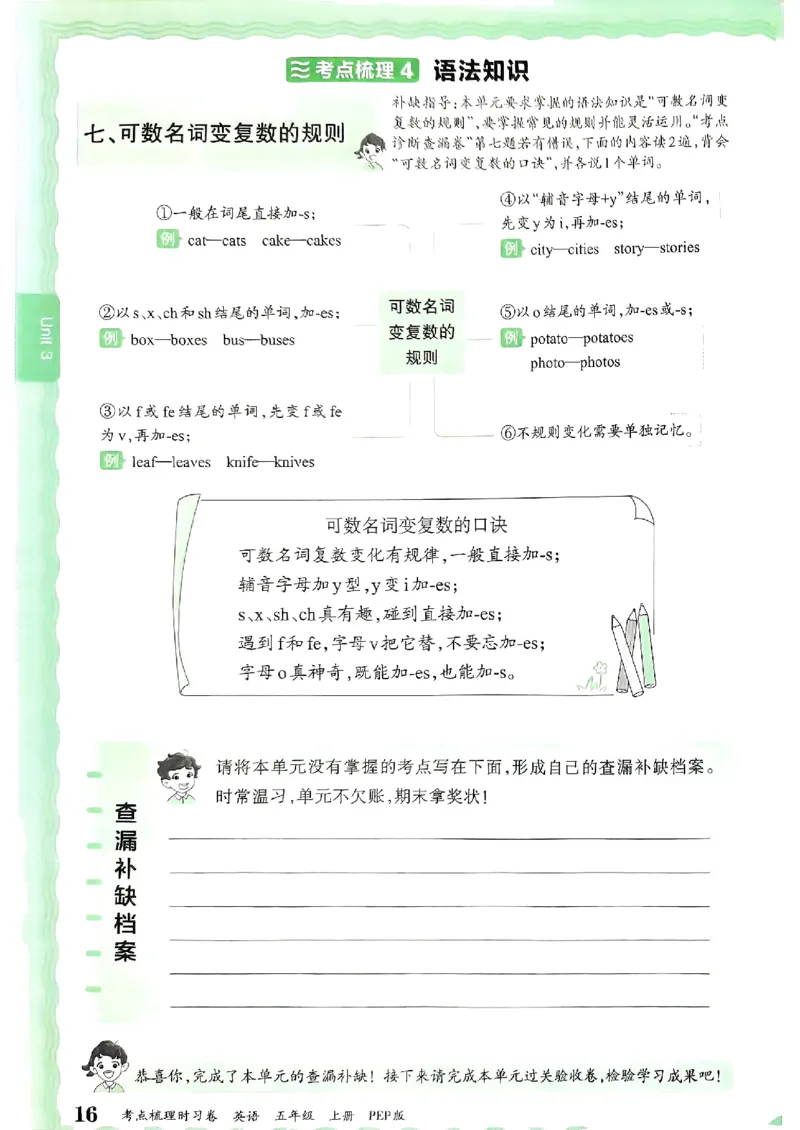 考点梳理4 语法知识
七、可数名词变复数的规则
补缺指导:本单元要求掌握的语法知识是“可数名词变
复数的规则”,要掌握常见的规则并能灵活运用。“考点
诊断查漏卷”第七题若有错误,下面的内容读2遍,背会
“可数名词变复数的口诀”,并各说1个单词。
①一般在词尾直接加-s;
例 cat—cats cake—cakes
②以s、x、ch和sh结尾的单词,加-es;
例 box—boxes bus—buses
③以f或fe结尾的单词,先变f或fe
为v,再加-es;
例 leaf—leaves knife—knives
可数名词
变复数的
规则
④以“辅音字母+y”结尾的单词,
先变y为i,再加-es;
例 city—cities story—stories
⑤以o结尾的单词,加-es或-s;
例 potato—potatoes
photo—photos
⑥不规则变化需要单独记忆。
可数名词变复数的口诀
可数名词复数变化有规律,一般直接加-s;
辅音字母加y型,y变i加-es;
s、x、sh、ch真有趣,碰到直接加-es;
遇到f和fe,字母v把它替,不要忘加-es;
字母o真神奇,既能加-es,也能加-s。
Unit 3
查漏补缺档案
请将本单元没有掌握的考点写在下面,形成自己的查漏补缺档案。
时常温习,单元不欠账,期末拿奖状!
恭喜你,完成了本单元的查漏补缺!接下来请完成本单元过关验收卷,检验学习成果吧!
16 考点梳理时习卷 英语 五年级 上册 PEP版